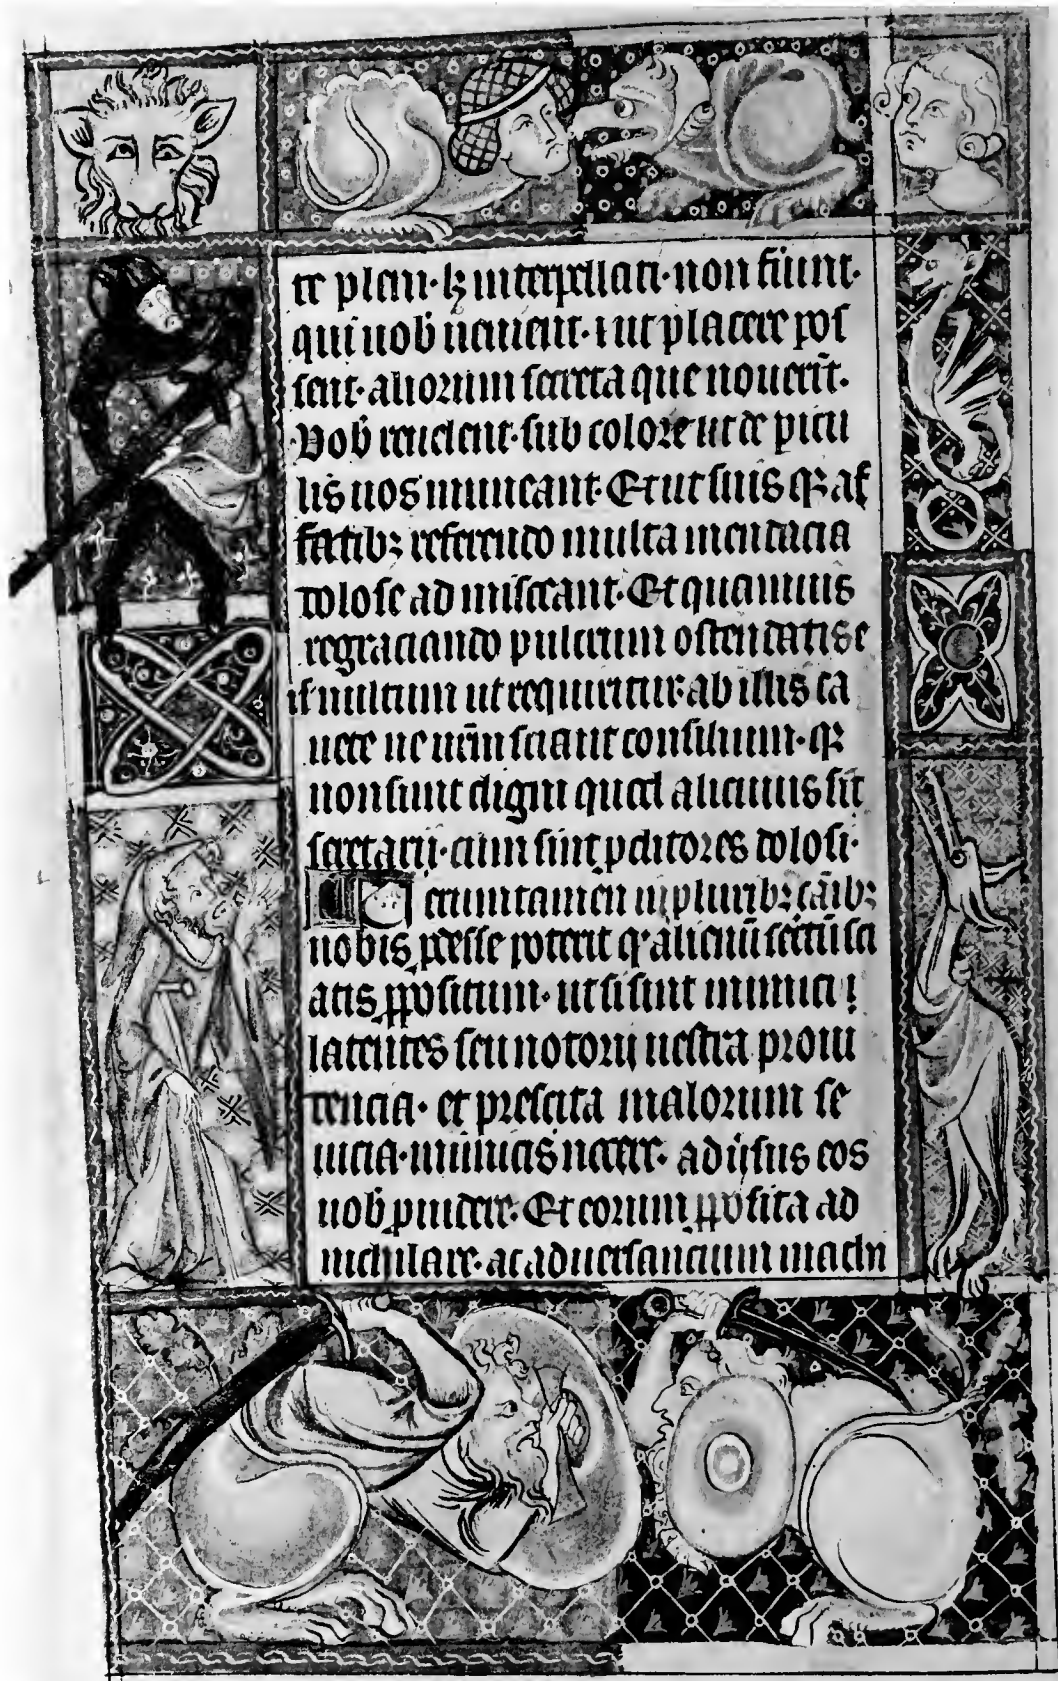 te pleni · lꝫ interpellati · non fiunt ·
qui uob̄ ueniunt · ⁊ ut placere pos
sent · aliorum secreta que nouerīt ·
Vob̄ reuelent · sub colore ut de picu
lis uos muneant · Et ut suis qꝫ af
fatibꝫ referendo multa mendacia
dolose ad misceant · Et quamuis
regraciando pulcrum ostendatis e
is multum ut requiritur · ab illis ca
uete ne ur̄m sciant consilium · qꝫ
non sunt digni quod alicuius sīt
secretarij · cum sint pditores dolosi ·
erumtamen in pluribꝫ cāibꝫ
nobis pdesse poterit qꝫ alienū secretū sci
atis ppositum · ut si sint inimici
latentes seu notorii uestra proui
dencia · et prescita malorum se
uicia · inimicis nocere · ad ipsus eos
uob̄ puidere · Et eorum pposita ad
nichilare · ac aduersancium machi